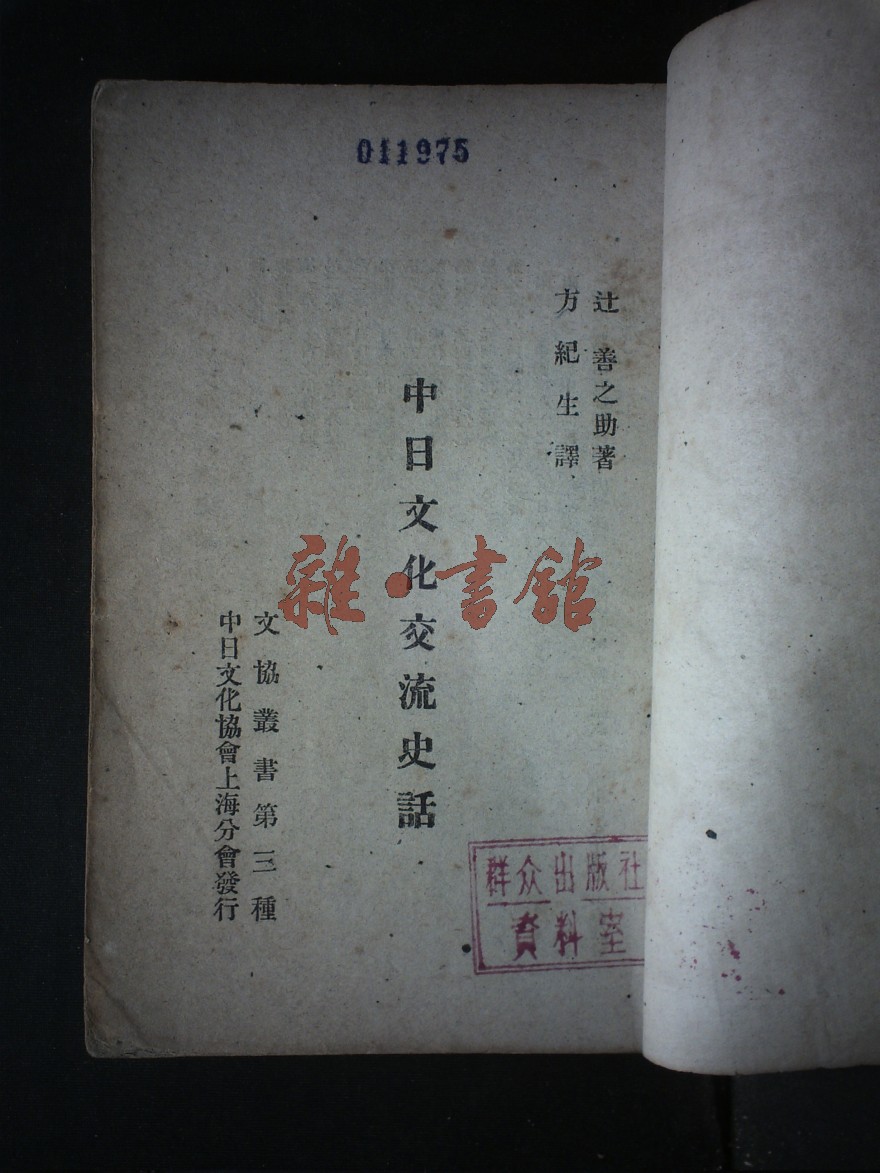 011975
辻善之助著
方紀生譯
中日文化交流史話
文協叢書第三種
中日文化協會上海分會發行
雜·書館
群众出版社
資料室